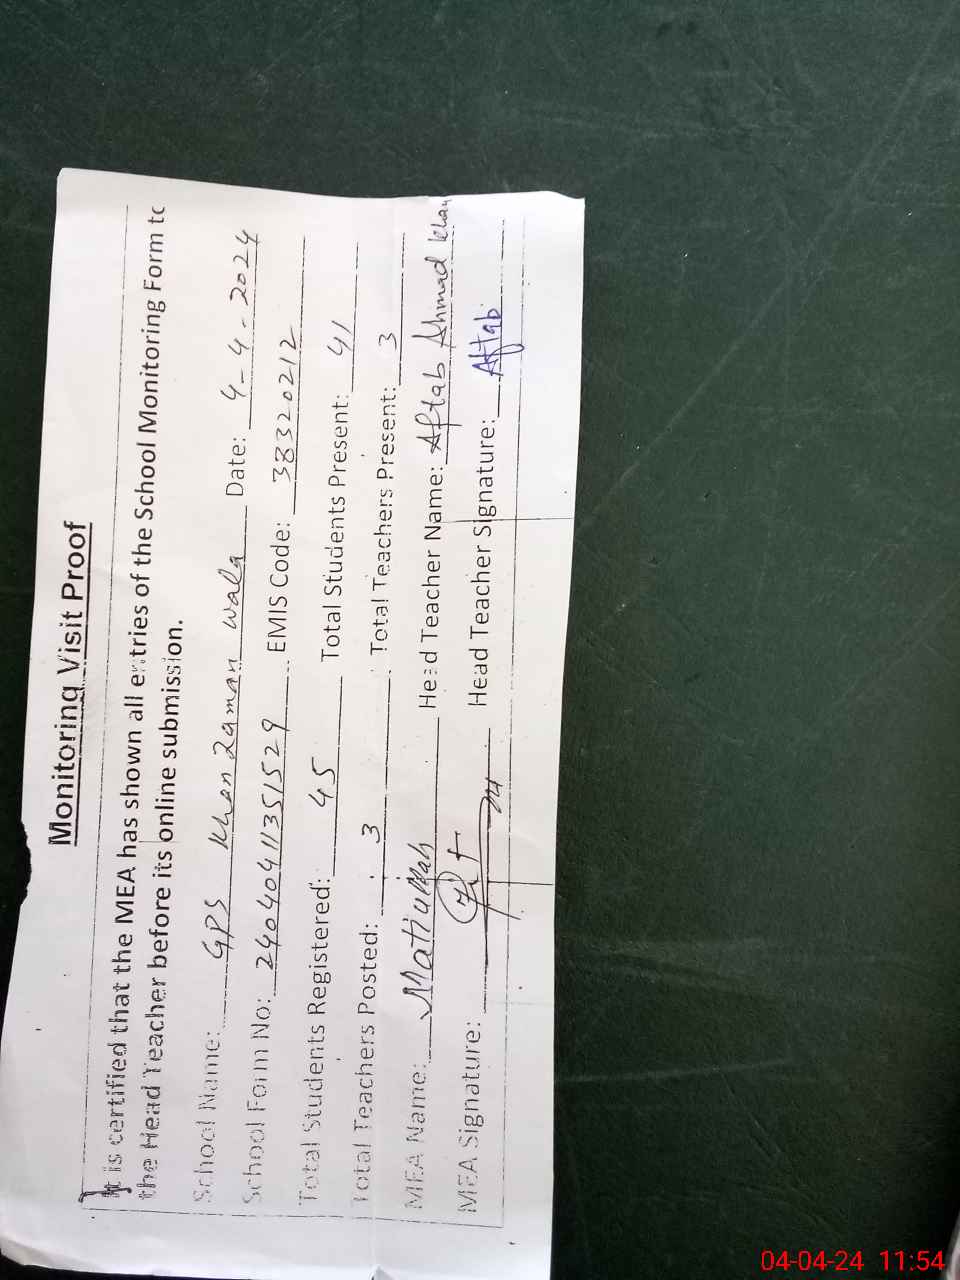 Monitoring Visit Proof
It is certified that the MEA has shown all entries of the School Monitoring Form to
the Head Teacher before its online submission.
School Name: GPS Khan Zaman Wala Date: 4-4-2024
School Form No: 24040411351529 EMIS Code: 38320212
Total Students Registered: 45 Total Students Present: 41
Total Teachers Posted: 3 Total Teachers Present: 3
MEA Name: Matiullah Head Teacher Name: Aftab Ahmad Khan
MEA Signature: Head Teacher Signature: Aftab
04-04-24 11:54